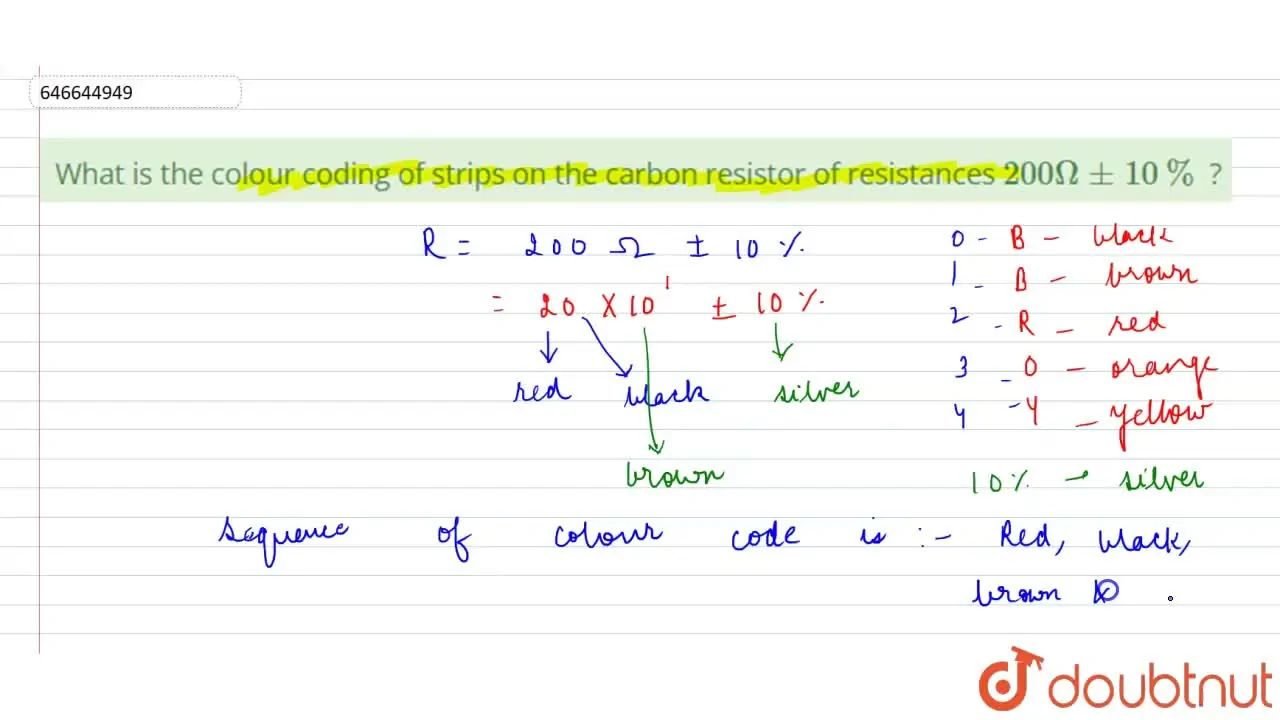 646644949
What is the colour coding of strips on the carbon resistor of resistances 200Ω ± 10 % ?
R = 200 Ω ± 10 %
= 20 X 10¹ ± 10 %
red black silver
brown
0 - B - black
1 - B - brown
2 - R - red
3 - O - orange
4 - Y - yellow
10% → silver
sequence of colour code is :- Red, black,
brown
doubtnut